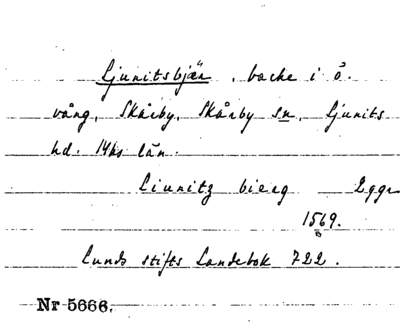 Ljunitsbjär, backe i ö.
vång, Skårby, Skårby sn, Ljunits
hd. Mhs län.
Liunitz bierg 2ggr
1569.
Lunds stifts Landebok 722.
Nr 5666.